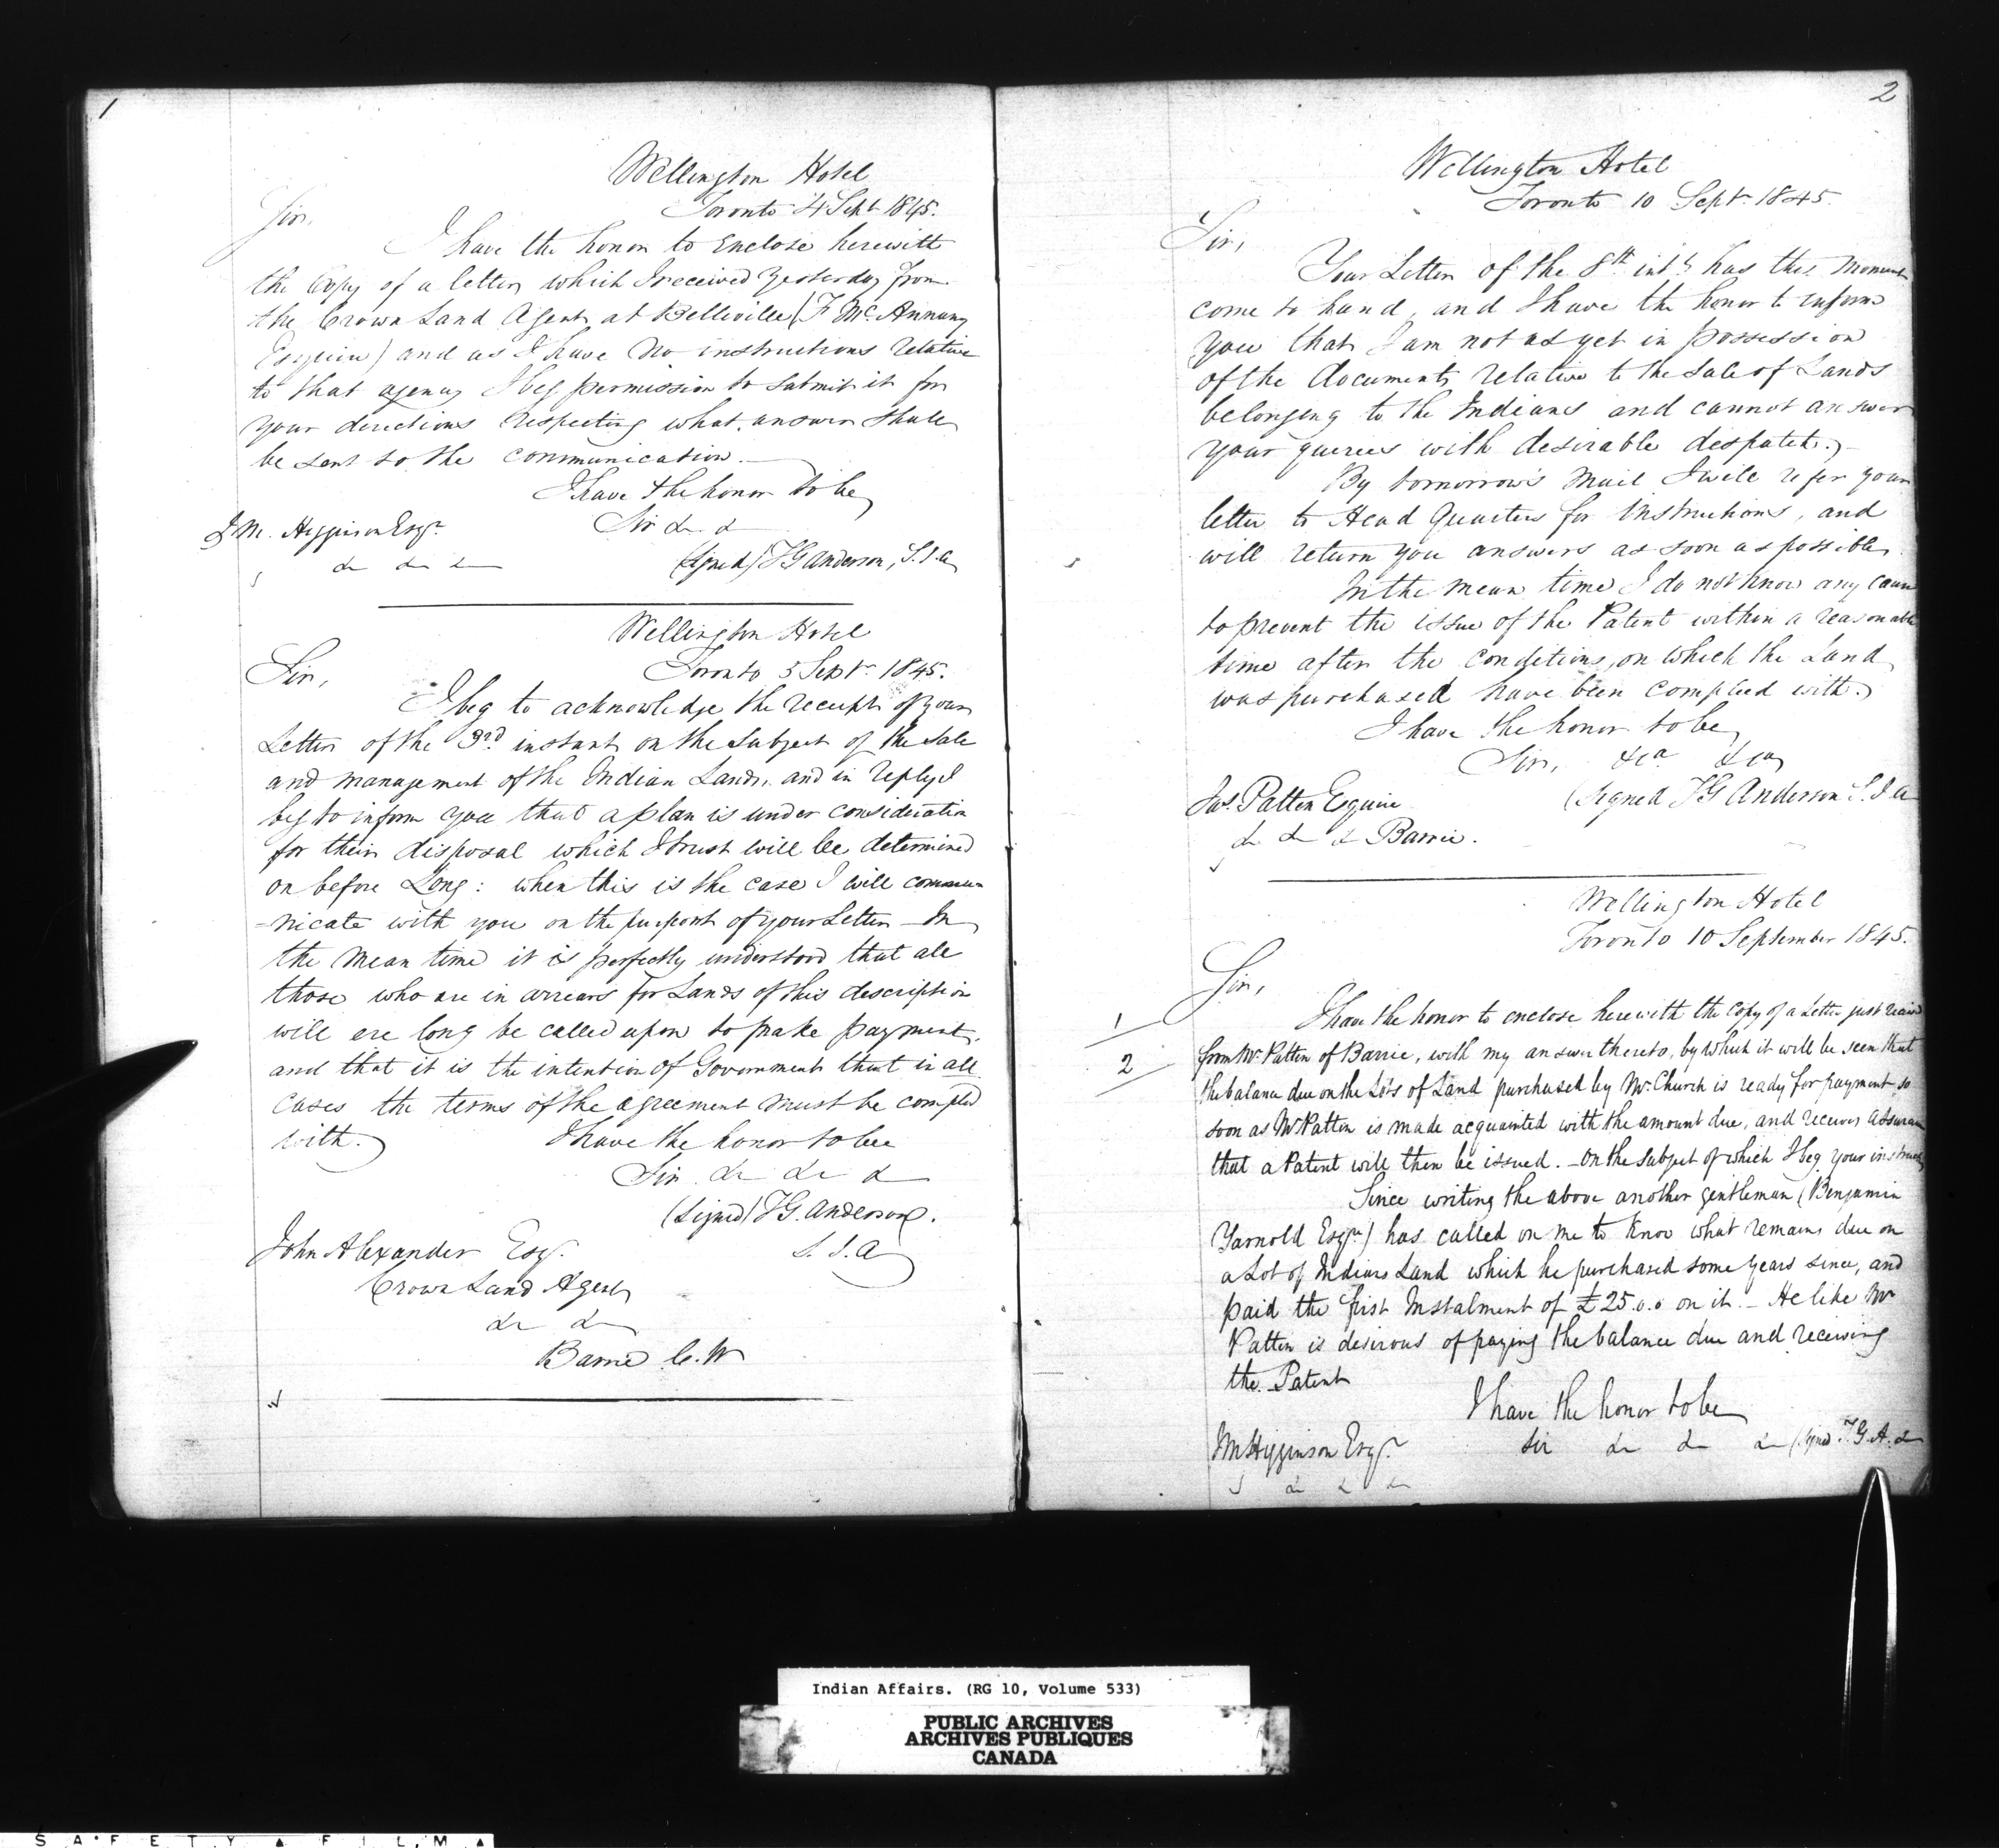 1
Wellington Hotel
Toronto 4 Sept 1845.
Sir,
I have the honor to enclose herewith
the Copy of a letter which I received yesterday from
the Crown Land Agent at Belleville (F McAnnany
Esquire) and as I have no instructions relative
to that agency I beg permission to submit it for
your directions respecting what answer shall
be sent to the communication.
I have the honor to be
Sir &c &
J M. Higginson Esqr.
& & &
(Signed) T G Anderson, S.I.A
Wellington Hotel
Toronto 5 Septr 1845.
Sir,
I beg to acknowledge the receipt of your
Letter of the 3rd instant on the subject of the Sale
and management of the Indian Lands, and in reply I
beg to inform you that a plan is under consideration
for their disposal which I trust will be determined
on before Long: when this is the case I will commu-
-nicate with you on the purport of your Letter - In
the mean time it is perfectly understood that all
those who are in arrears for Lands of this description
will ere long be called upon to make payment,
and that it is the intention of Government that in all
cases the terms of the agreement must be complied
with.
I have the honor to be
Sir &c &c &
(Signed) T G. Anderson.
S.I.A
John Alexander Esqr.
Crown Land Agent
&c &
Barrie C.W
2
Wellington Hotel
Toronto 10 Septr 1845.
Sir,
Your Letter of the 8th inst has this moment
come to hand, and I have the honor to inform
you that I am not as yet in possession
of the documents relative to the Sale of Lands
belonging to the Indians and cannot answer
your queries with desirable despatch.
By tomorrow's Mail I will refer your
letter to Head Quarters for instructions, and
will return you answers as soon as possible
In the mean time I do not know any cause
to prevent the issue of the Patent within a reasonable
time after the conditions, on which the Land
was purchased have been complied with.
I have the honor to be
Sir, &ca &ca
(Signed T G Anderson S.I.A
Jas. Patten Esquire
& & & Barrie.
Wellington Hotel
Toronto 10 September 1845.
Sir,
1
I have the honor to enclose herewith the copy of a Letter just received
2
from Mr Patten of Barrie, with my answer thereto, by which it will be seen that
the balance due on the Lots of Land purchased by Mr. Church is ready for payment so
soon as Mr Patten is made acquainted with the amount due, and receives assurance
that a Patent will then be issued. - On the subject of which I beg your instructions
Since writing the above another gentleman (Benjamin
Yarnold Esqr) has called on me to know what remains due on
a Lot of Indians Land which he purchased some years since, and
paid the first Instalment of £25.0.0 on it. - He like Mr
Patten is desirous of paying the balance due and receiving
the Patent
I have the honor to be
Sir & & & (Signed T.G.A. &
J M Higginson Esqr.
& & &
Indian Affairs. (RG 10, Volume 533)
PUBLIC ARCHIVES
ARCHIVES PUBLIQUES
CANADA
SAFETY FILM